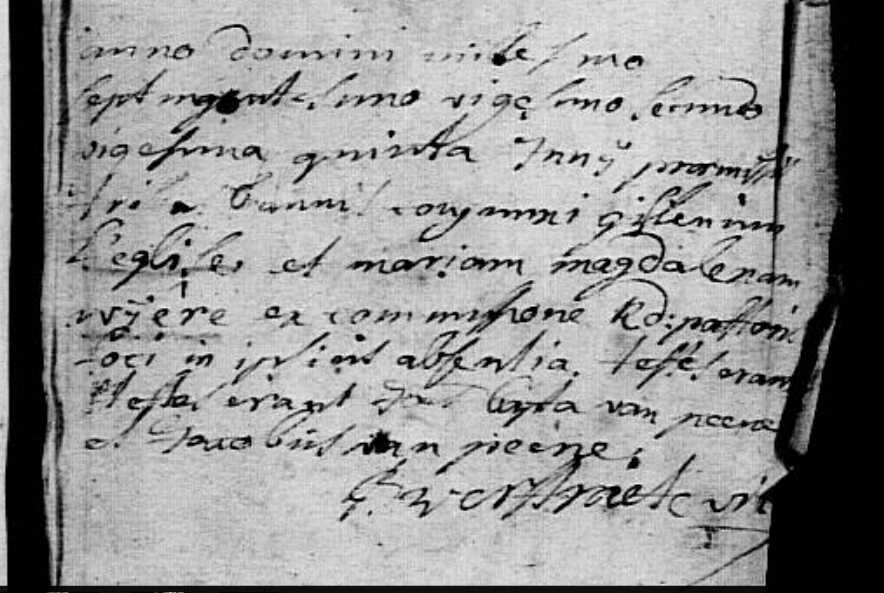 anno domini milesimo
septingentesimo vigesimo secundo
vigesima quinta Junÿ praemissis
tribus bannis conjunxi gislenum
l'eglise, et mariam magdalenam
ex commissione Rd: pastoris
loci in ipsius absentia. testes erant
testes erant Bapta van peene
et Jacobus van peene.
Verstraete vic